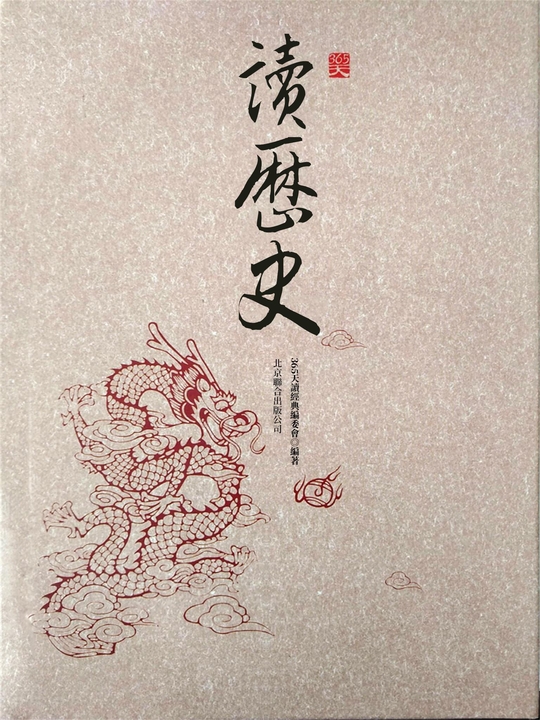 365
天
讀歷史
365天讀經典編委會◎編著
北京聯合出版公司